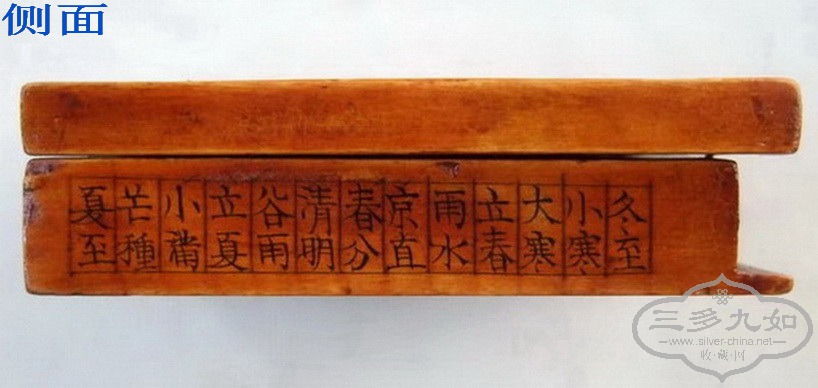 侧面
冬至
小寒
大寒
立春
雨水
京直
春分
清明
谷雨
立夏
小满
芒種
夏至
三多九如
www.silver-china.net
收·藏·网